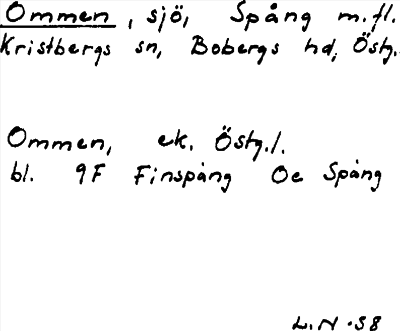 Ommen, sjö, Spång m.fl.
Kristbergs sn, Bobergs hd, Östg.
Ommen, ek. Östg.l.
bl. 9F Finspång Oe Spång
L.N. 58